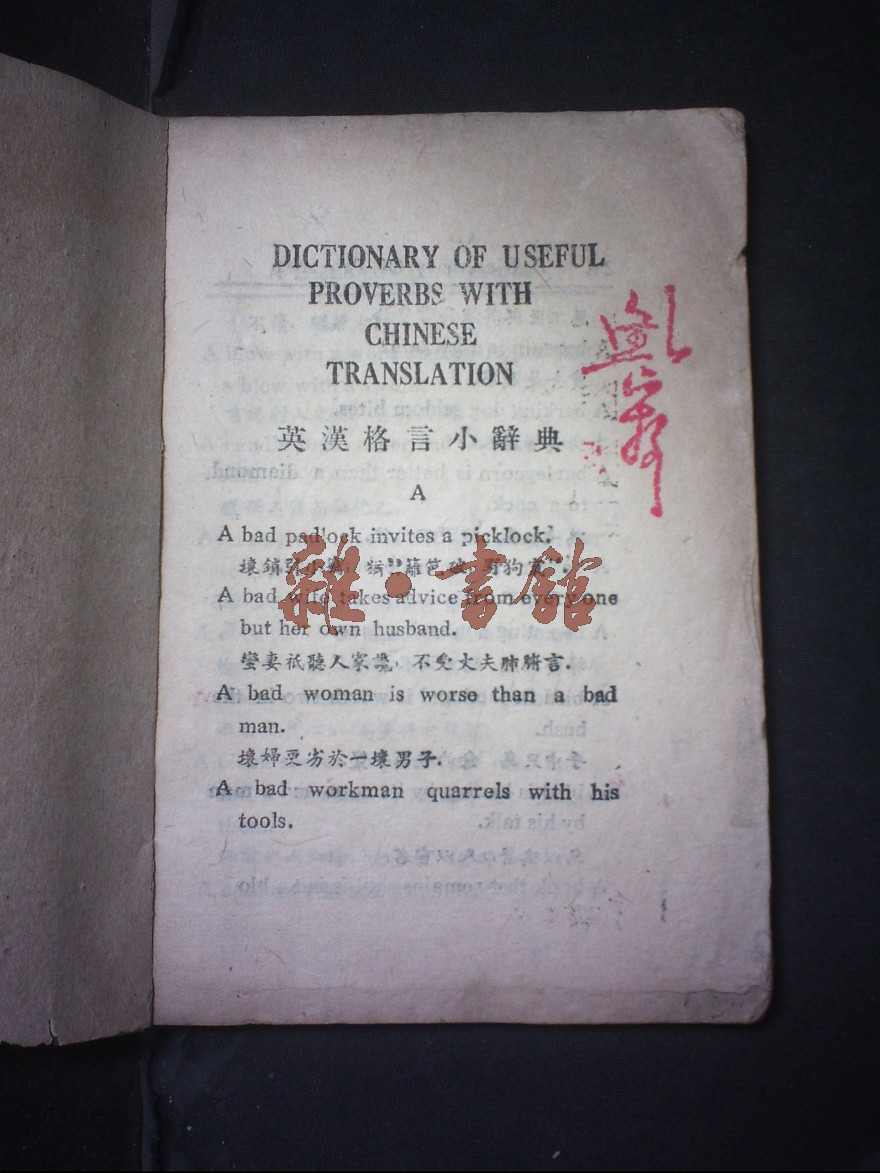 DICTIONARY OF USEFUL
PROVERBS WITH
CHINESE
TRANSLATION
英漢格言小辭典
A
A bad padlock invites a picklock.
壞鎖 小 籬笆破 狗
A bad wife takes advice from every one
but her own husband.
蠻妻祇聽人家讒，不受丈夫肺腑言．
A bad woman is worse than a bad
man.
壞婦更劣於一壞男子．
A bad workman quarrels with his
tools.
雜·書館